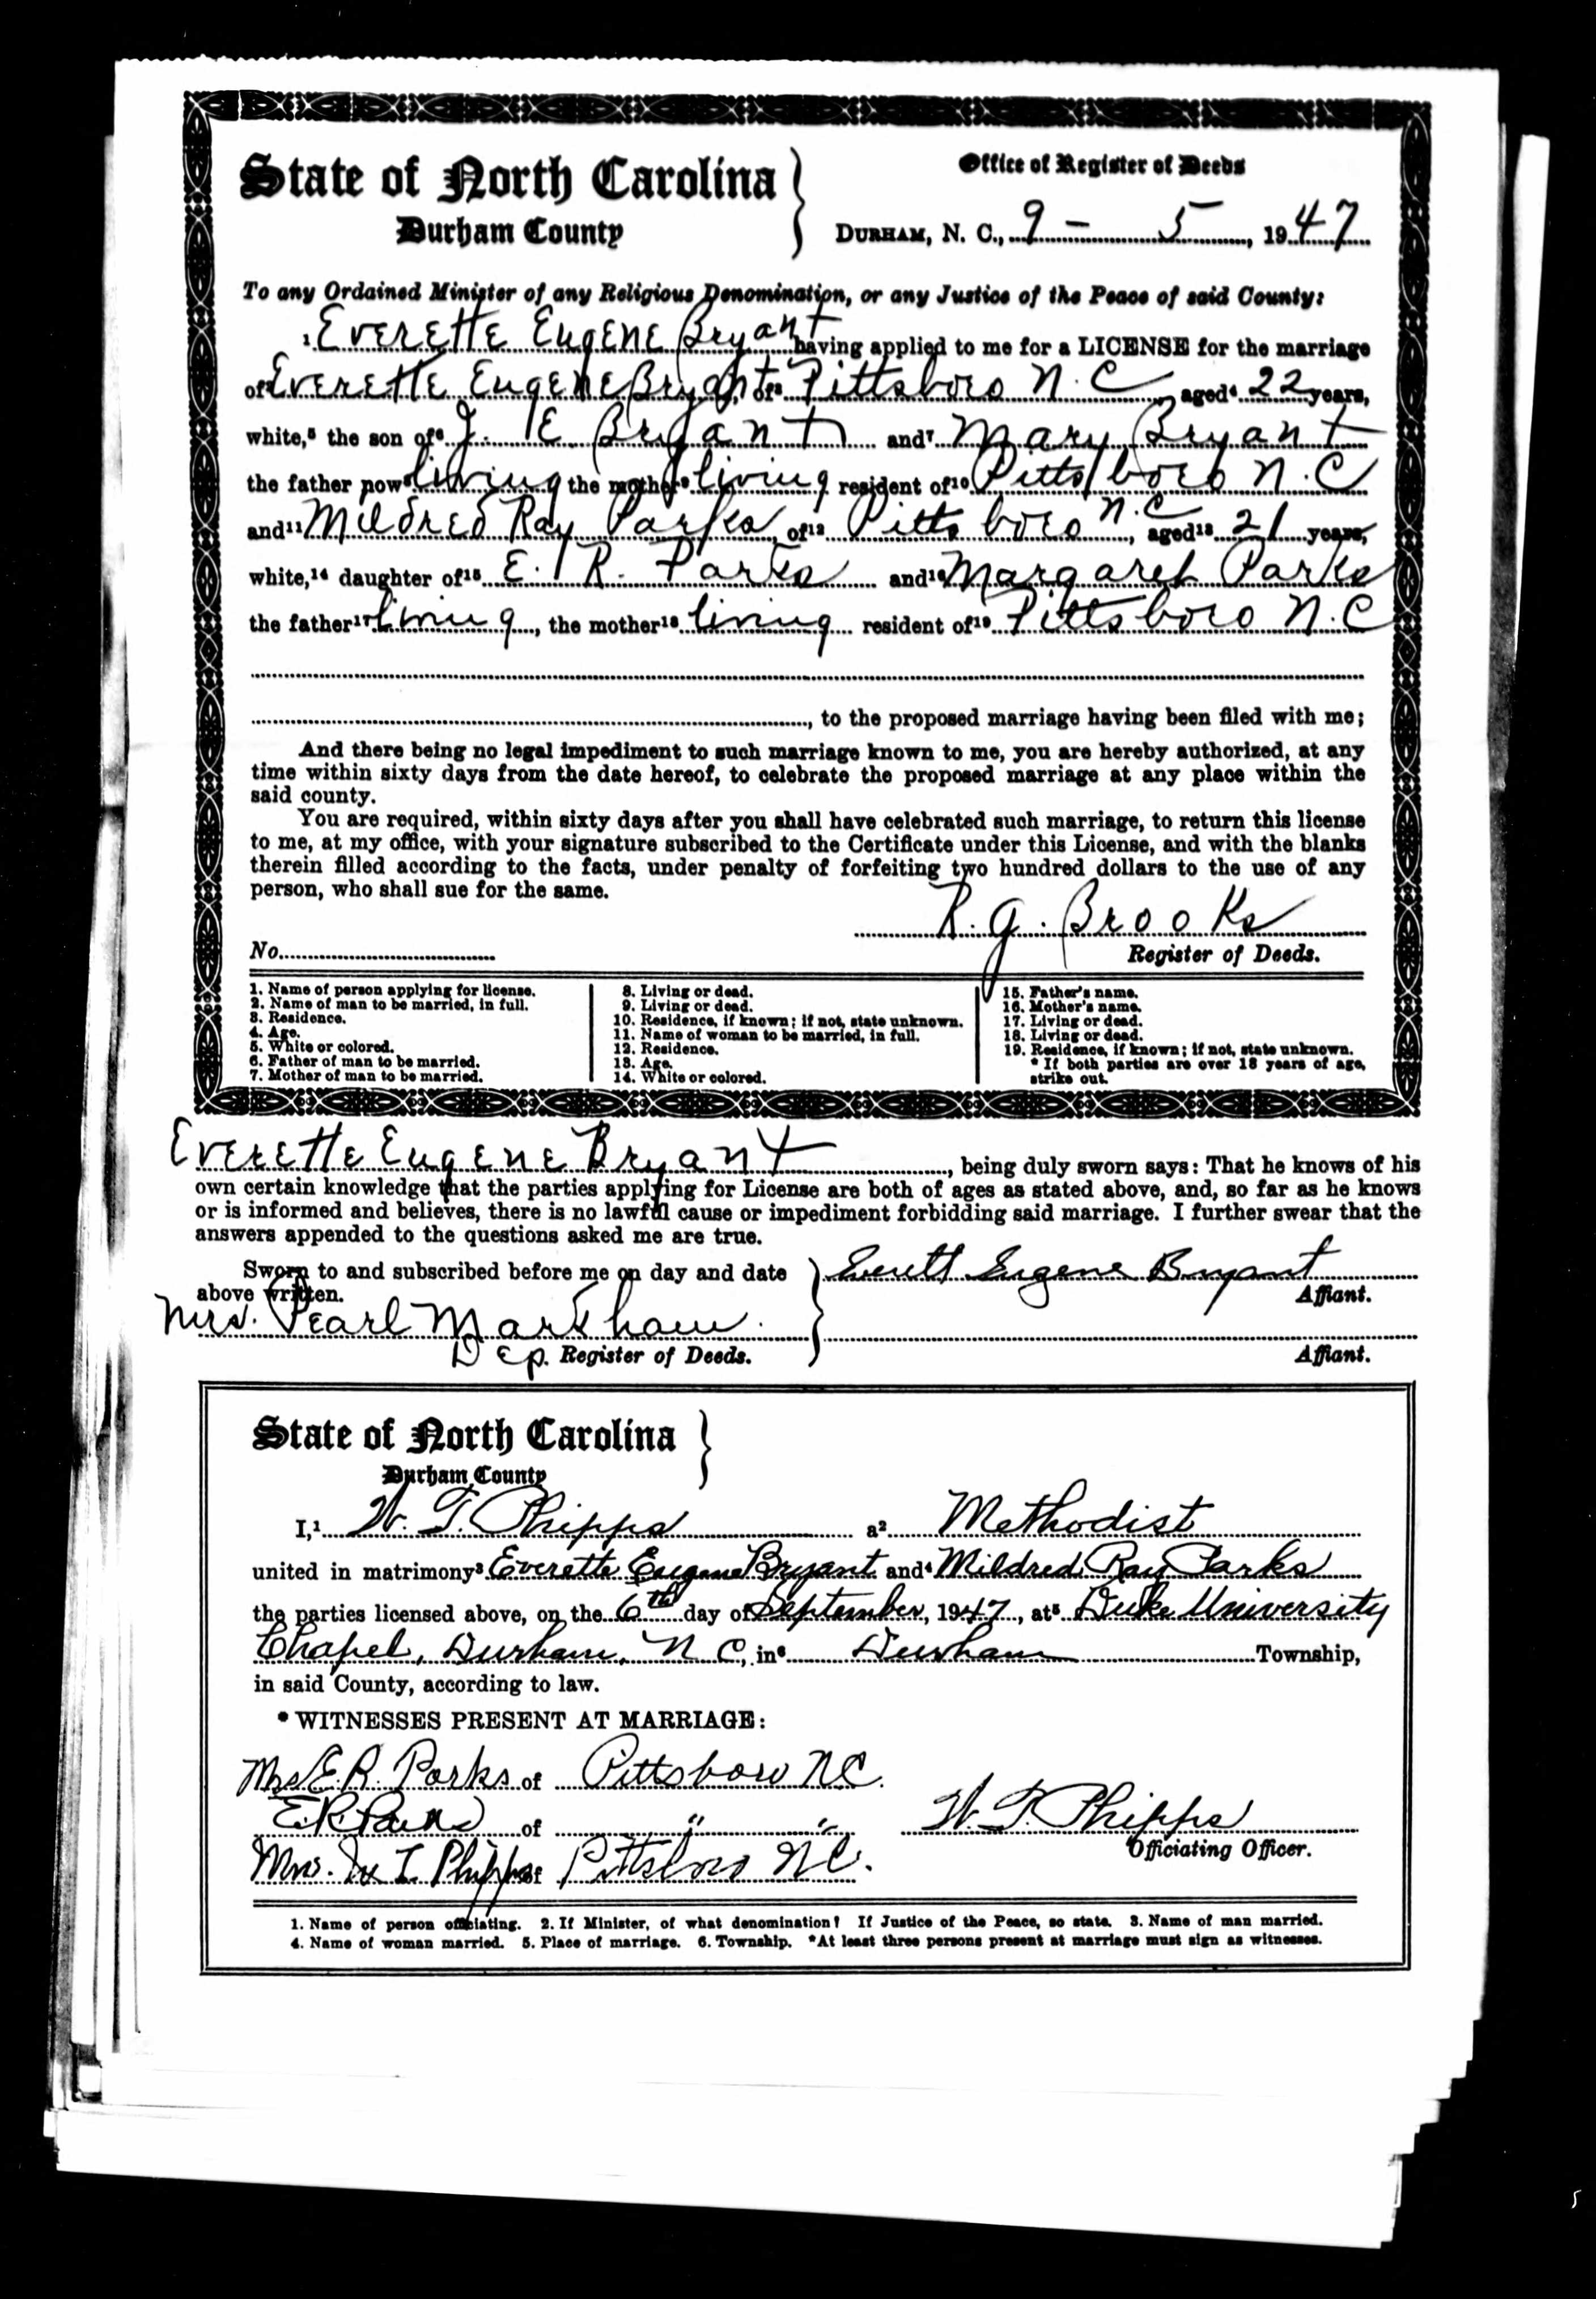 State of North Carolina
Durham County
Office of Register of Deeds
DURHAM, N. C., 9 - 5, 1947
To any Ordained Minister of any Religious Denomination, or any Justice of the Peace of said County:
1 Everette Eugene Bryant having applied to me for a LICENSE for the marriage
of2 Everette Eugene Bryant, of3 Pittsboro N.C, aged4 22 years,
white,5 the son of6 J. E Bryant and7 Mary Bryant
the father now8 living the mother9 living resident of10 Pittsboro N.C
and11 Mildred Ray Parks, of12 Pittsboro N.C, aged13 21 years,
white,14 daughter of15 E. R. Parks and16 Margaret Parks
the father17 living, the mother18 living resident of19 Pittsboro N.C
, to the proposed marriage having been filed with me;
And there being no legal impediment to such marriage known to me, you are hereby authorized, at any
time within sixty days from the date hereof, to celebrate the proposed marriage at any place within the
said county.
You are required, within sixty days after you shall have celebrated such marriage, to return this license
to me, at my office, with your signature subscribed to the Certificate under this License, and with the blanks
therein filled according to the facts, under penalty of forfeiting two hundred dollars to the use of any
person, who shall sue for the same.
R. G. Brooks
No. Register of Deeds.
1. Name of person applying for license.
2. Name of man to be married, in full.
3. Residence.
4. Age.
5. White or colored.
6. Father of man to be married.
7. Mother of man to be married.
8. Living or dead.
9. Living or dead.
10. Residence, if known; if not, state unknown.
11. Name of woman to be married, in full.
12. Residence.
13. Age.
14. White or colored.
15. Father's name.
16. Mother's name.
17. Living or dead.
18. Living or dead.
19. Residence, if known; if not, state unknown.
* If both parties are over 18 years of age,
strike out.
Everette Eugene Bryant, being duly sworn says: That he knows of his
own certain knowledge that the parties applying for License are both of ages as stated above, and, so far as he knows
or is informed and believes, there is no lawful cause or impediment forbidding said marriage. I further swear that the
answers appended to the questions asked me are true.
Sworn to and subscribed before me on day and date
above written.
Everett Eugene Bryant
Affiant.
Mrs. Pearl Markham
Dep. Register of Deeds.
Affiant.
State of North Carolina
Durham County
I,1 W. T. Phipps a2 Methodist
united in matrimony3 Everette Eugene Bryant and4 Mildred Ray Parks
the parties licensed above, on the 6th day of September, 1947, at5 Duke University
Chapel, Durham, N C, in6 Durham Township,
in said County, according to law.
* WITNESSES PRESENT AT MARRIAGE:
Mrs E R Parks of Pittsboro NC.
E. R. Parks of " "
W. T. Phipps
Officiating Officer.
Mrs. W T. Phipps of Pittsboro NC.
1. Name of person officiating. 2. If Minister, of what denomination? If Justice of the Peace, so state. 3. Name of man married.
4. Name of woman married. 5. Place of marriage. 6. Township. *At least three persons present at marriage must sign as witnesses.
5